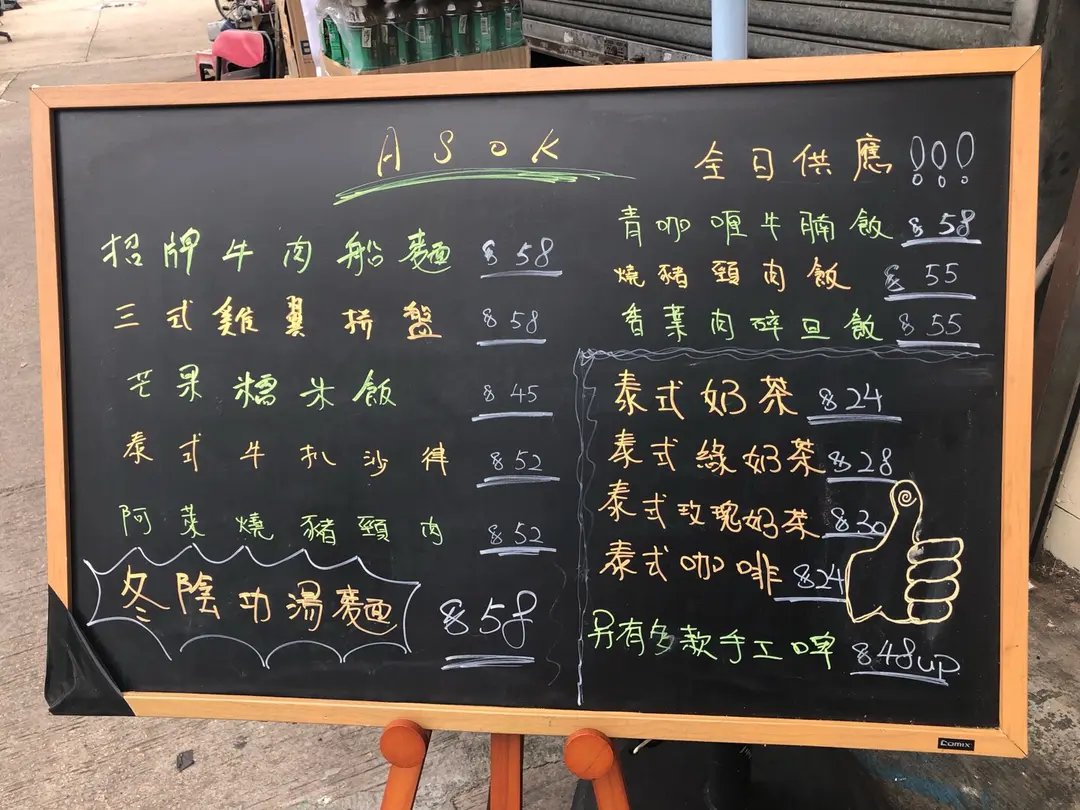 ASOK
招牌牛肉船麵 $58
三式雞翼拼盤 $58
芒果糯米飯 $45
泰式牛扒沙律 $52
阿萊燒豬頸肉 $52
冬陰功湯麵 $58
全日供應!!!
青咖喱牛腩飯 $58
燒豬頸肉飯 $55
香葉肉碎旦飯 $55
泰式奶茶 $24
泰式綠奶茶 $28
泰式玫瑰奶茶 $30
泰式咖啡 $24
另有多款手工啤 $48up
Comix